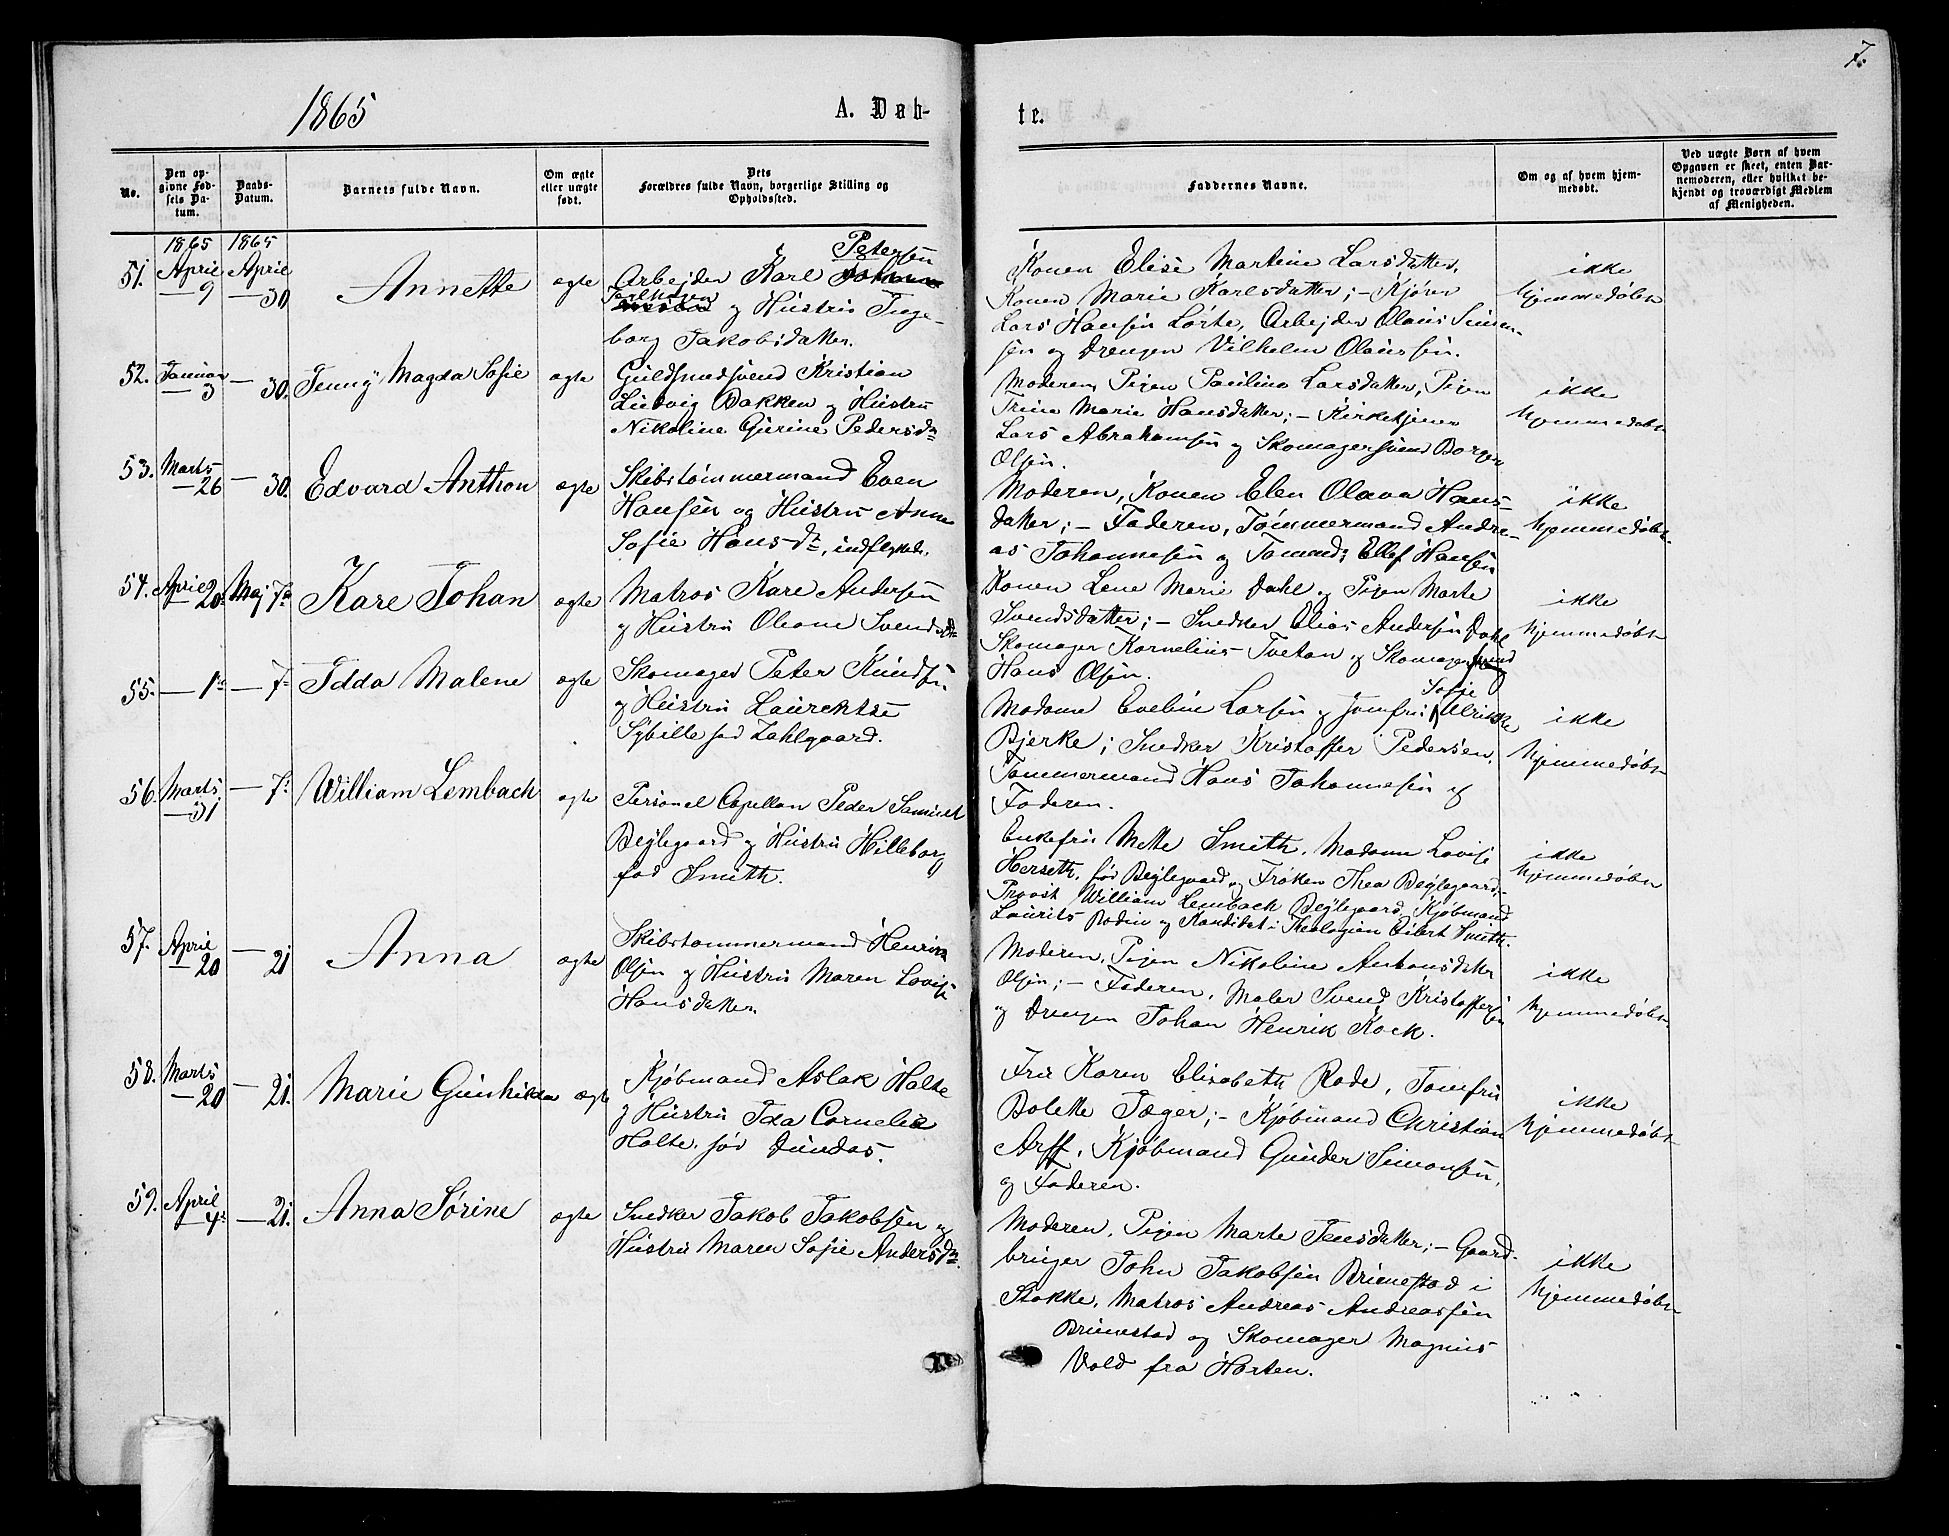 7.
1865
A. Døb-
te.
No.
Den opgivne Fødsels Datum.
Daabs-Datum.
Barnets fulde Navn.
Om ægte eller uægte født.
Dets Forældres fulde Navn, borgerlige Stilling og Opholdssted.
Faddernes Navne.
Om og af hvem hjemmedøbt.
Ved uægte Børn af hvem Opgaven er skeet, enten Barnemoderen, eller hvilket bekjendt og troværdigt Medlem af Menigheden.
1865 1865
51. April 9 April 30. Annette ægte
Petersen
Arbejder Karl
og Hustru Inge-
borg Jakobsdatter.
Konen Elise Martine Larsdatter,
Konen Marie Karlsdatter; - Kjører
Lars Hansen Lørte, Arbejder Olaus Simen-
sen og Drengen Vilhelm Olaussen.
ikke
hjemmedøbt
52. Januar 3 — 30. Jenny Magda Sofie ægte
Guldsmedsvend Kristian
Ludvig Bakken og Hustru
Nikoline Gurine Pedersdr
Moderen, Pigen Pauline Larsdatter, Pigen
Trine Marie Hansdatter; - Kirketjener
Lars Abrahamsen og Skomagersvend Borger
Olsen.
ikke
hjemmedøbt
53. Marts 26 — 30. Edvard Anthon ægte
Skibstømmermand Even
Hansen og Hustru Anne
Sofie Hans-dr, indflyttede.
Moderen, Konen Elen Olava Hans-
datter; - Faderen, Tømmermand Andre-
as Johannesen og Tømmd; Ellef Hansen
ikke
hjemmedøbt
54. April 20 Maj 7 Kare Johan ægte
Matros Kare Andersen
og Hustru Oleane Svendsdr
Konen Lene Marie Dahl og Pigen Marte
Svendsdatter; - Snedker Elias Andersen Dahl
Skomager Kornelius Tveten og Skomagersvend
Hans Olsen.
ikke
hjemmedøbt
55. — 1 — 7 Idda Malene ægte
Skomager Peter Knudsen
og Hustru Laurentse
Sybille fød Zahlgaard.
Sofie
Madame Eveline Larsen og Jomfru Ulrikke
Bjerke; Snedker Kristoffer Pedersen,
Tømmermand Hans Johannesen og
Faderen.
ikke
hjemmedøbt
56. Marts 31 — 7 William Lembach ægte
Personel Capellan Peder Samuel
Beylegaard og Hustru Hilleborg
fød Smith.
Enkefru Mette Smith, Madame Lovise
Herseth, før Beylegaard og Frøken Thea Beylegaard.
Provst William Lembach Beylegaard, Kjøbmand
Laurits Bodin og Kandidat i Theologien Eilert Smith.
ikke
hjemmedøbt
57. April 20 — 21 Anna ægte
Skibstømmermand Henrik
Olsen og Hustru Maren Lovise
Hansdatter
Moderen, Pigen Nikoline Antonsdatter
Olsen; - Faderen, Maler Svend Kristoffersen
og Drengen Johan Henrik Kock.
ikke
hjemmedøbt
58. Marts 20 — 21. Marie Gunhilda ægte
Kjøbmand Aslak Holte
og Hustru Ida Cornelia
Holte, før Dundas.
Fru Karen Elisabeth Rode, Jomfru
Bolette Jæger; - Kjøbmand Christian
Arff, Kjøbmand Gunder Simonsen,
og Faderen.
ikke
hjemmedøbt
59. April 4 — 21. Anna Sørine ægte
Snedker Jakob Jakobsen og
Hustru Maren Sofie Andersdr.
Moderen, Pigen Marte Jensdatter; - Gaard-
bruger John Jakobsen Brunestad i
Stokke, Matros Andreas Andreassen
Brunestad og Skomager Magnus
Vold fra Horten.
ikke
hjemmedøbt